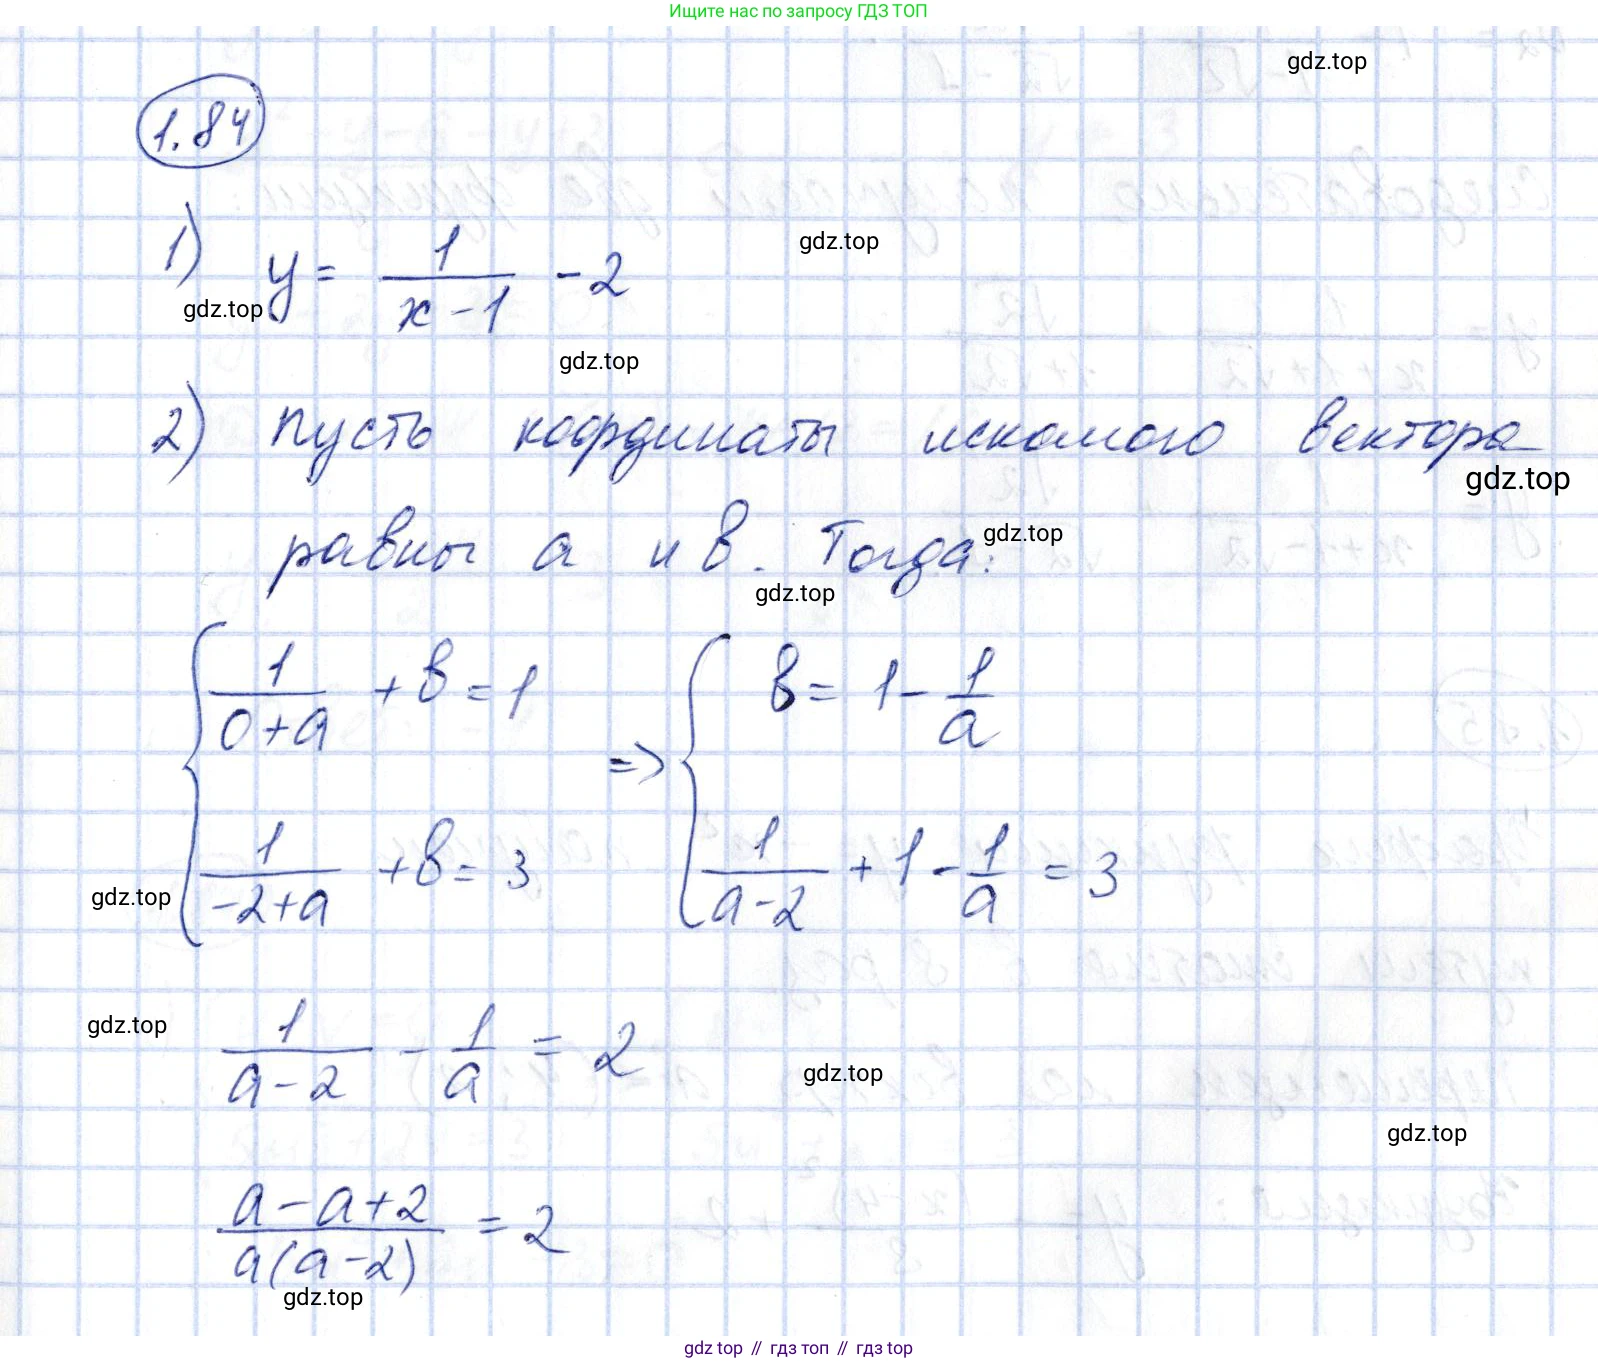 Ищите нас по запросу ГДЗ ТОП
gdz.top
1.84
1) y = 1/(x-1) - 2
gdz.top
gdz.top
gdz.top
2) Пусть координаты искомого вектора
gdz.top
равны a и b. Тогда:
gdz.top
gdz.top
{ 1/(0+a) + b = 1 => { b = 1 - 1/a
{ 1/(-2+a) + b = 3 { 1/(a-2) + 1 - 1/a = 3
gdz.top
1/(a-2) - 1/a = 2
gdz.top
gdz.top
gdz.top
(a-a+2)/(a(a-2)) = 2
gdz.top
gdz top // гдз топ // гдз top